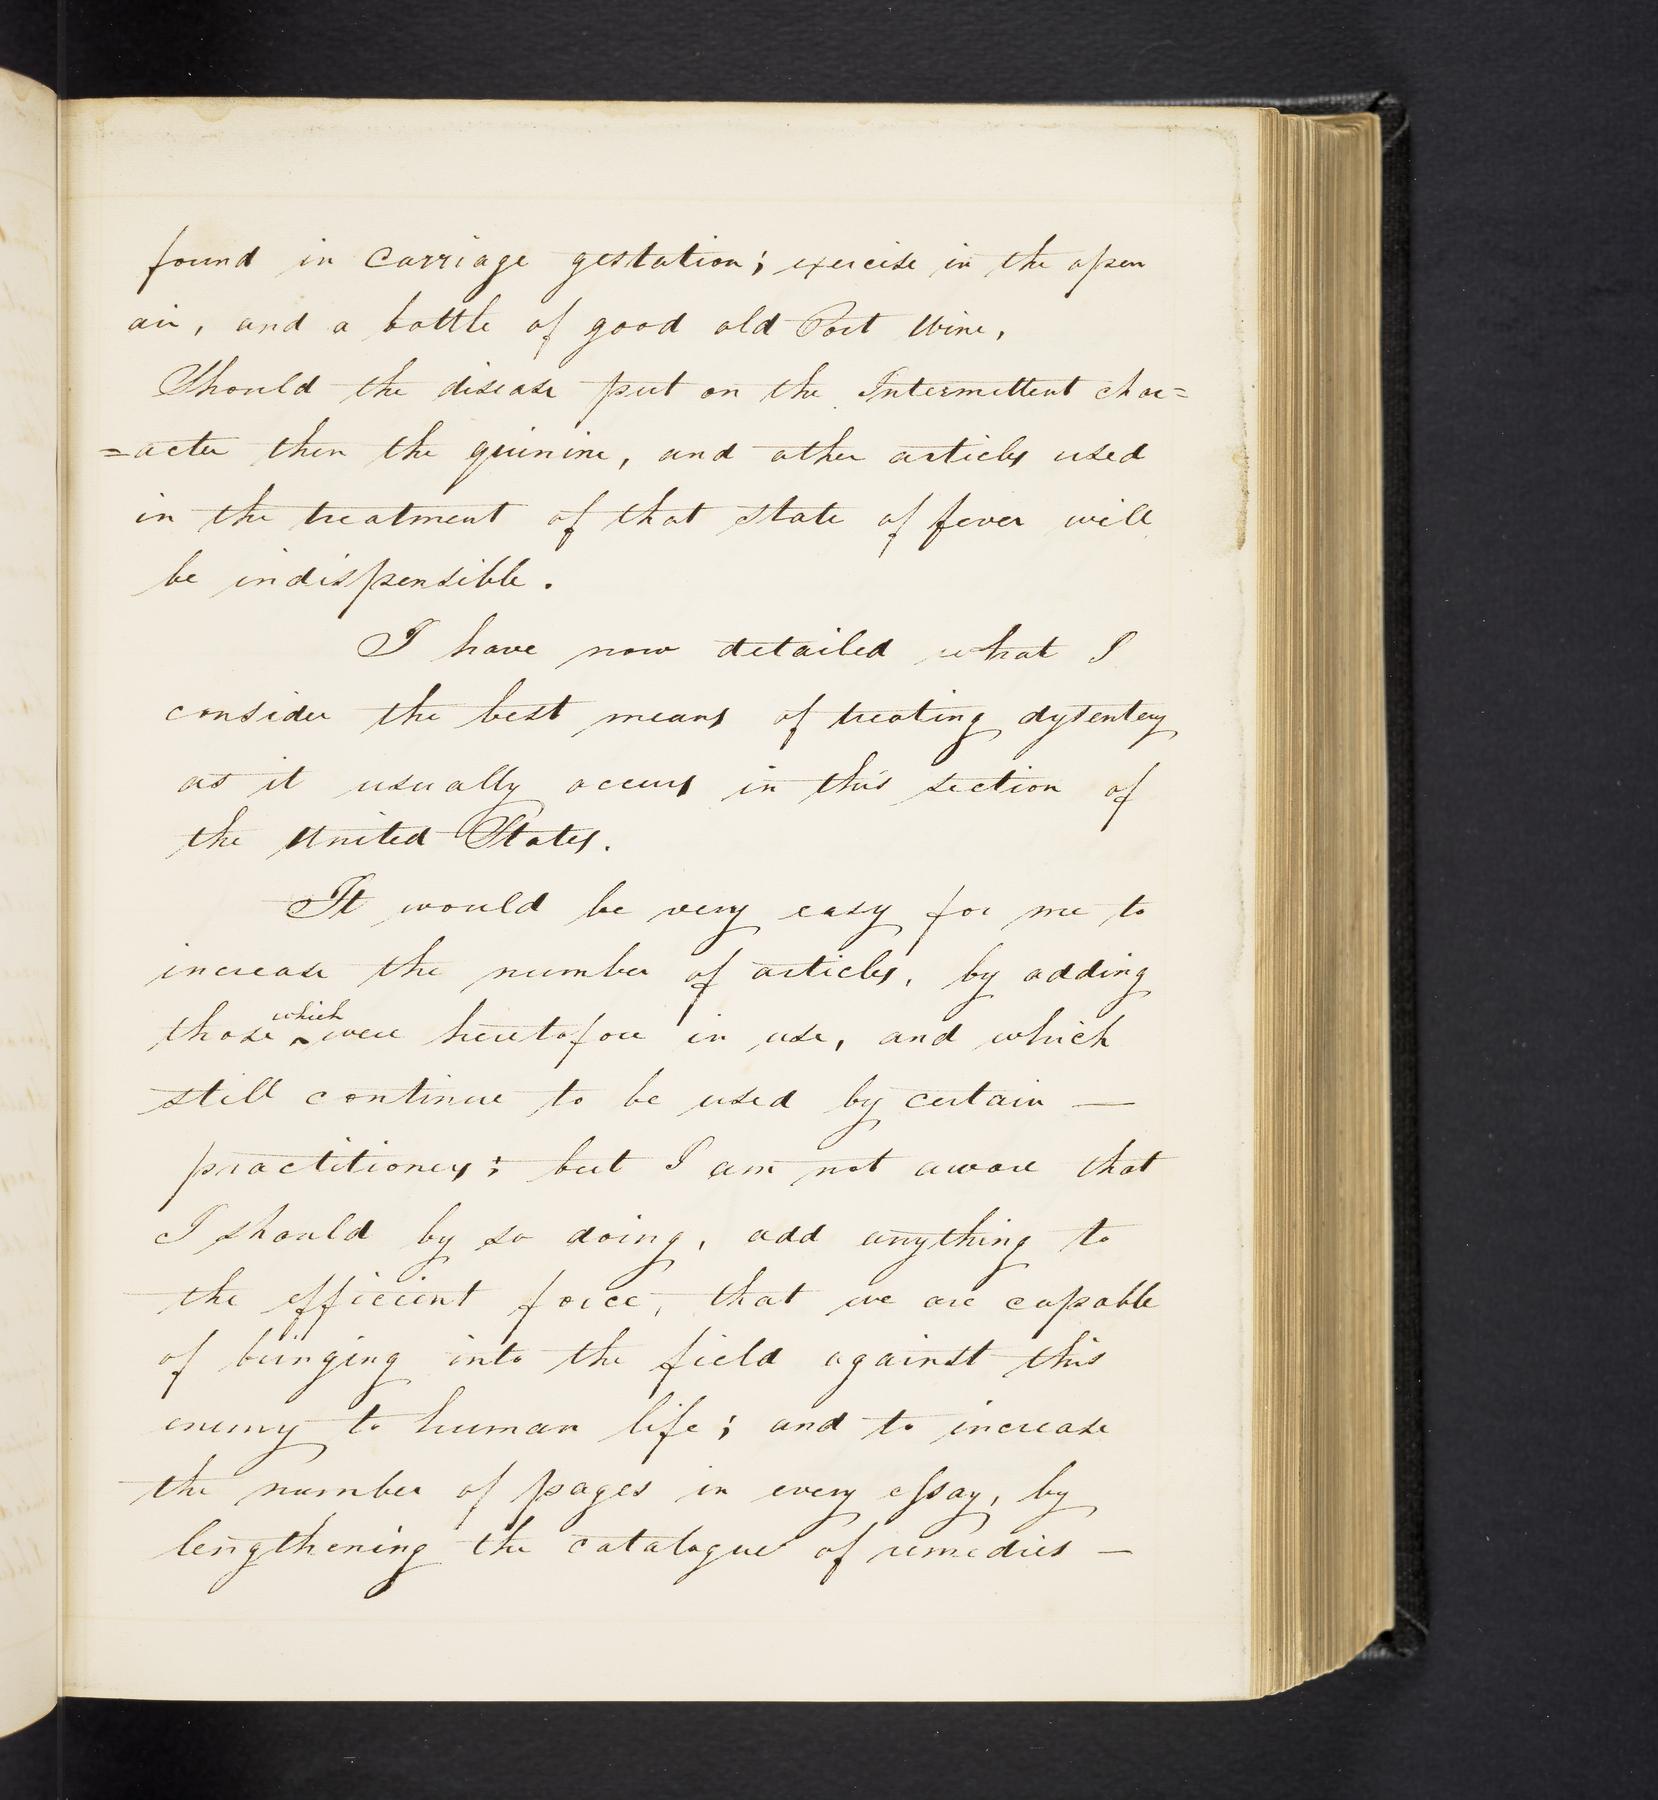 found in carriage gestation; exercise in the open
air, and a bottle of good old Port Wine,
Should the disease put on the Intermittent char=
=acter then the quinine, and other articles used
in the treatment of that state of fever will
be indispensible.
I have now detailed what I
consider the best means of treating dysentery
as it usually occurs in this section of
the United States.
It would be very easy for me to
increase the number of articles, by adding
those which were heretofore in use, and which
still continue to be used by certain —
practitioners; but I am not aware that
I should by so doing, add anything to
the efficient force, that we are capable
of bringing into the field against this
enemy to human life; and to increase
the number of pages in every essay, by
lengthening the catalogue of remedies —